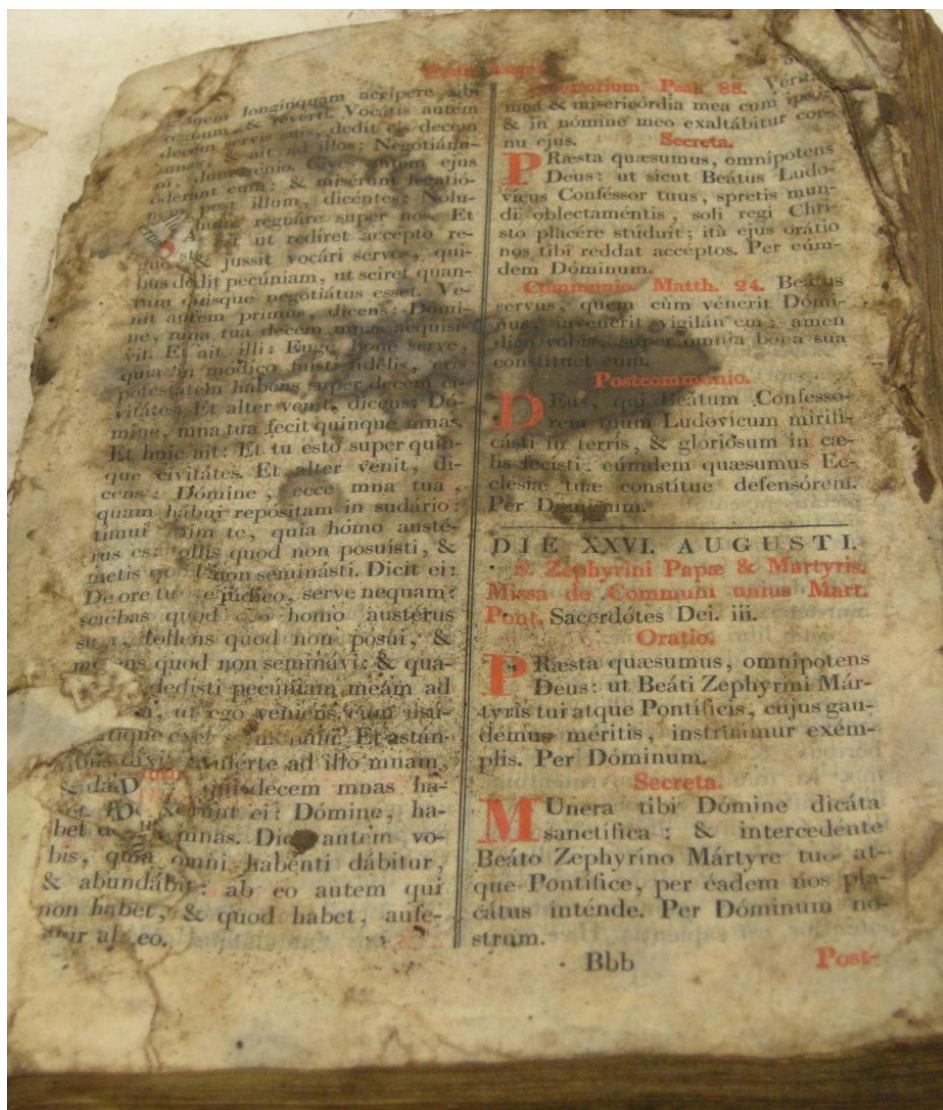 longinquam accipere sibi
regnum, & reverti. Vocátis autem
decem servis suis, dedit eis decem
mnas, & ait ad illos: Negotiámi-
ni, dum venio. Cives autem ejus
óderant eum: & misérunt legatió-
post illum, dicéntes: Nolu-
hunc regnáre super nos. Et
ut rediret accepto re-
gno jussit vocári servos, qui-
bus dedit pecúniam, ut sciret quan-
tum quisque negotiátus esset. Ve-
nit autem primus, dicens: Dómi-
ne, mna tua decem mnas acquisi-
vit. Et ait illi: Euge, bone serve,
quia in modico fuisti fidélis, eris
potestátem habens super decem ci-
vitátes. Et alter venit, dicens: Dó-
mine, mna tua fecit quinque mnas.
Et huic ait: Et tu esto super quin-
que civitátes. Et alter venit, di-
cens: Dómine, ecce mna tua,
quam hábui repósitam in sudário:
timui te, quia homo austé-
rus es: tollis quod non posuísti, &
metis non seminásti. Dicit ei:
De ore júdico, serve nequam:
sciebas quod homo austérus
tollens quod non pósui, &
quod non seminávi: & qua-
dedisti pecúniam meám ad
ut ego véniens cum usú-
Et astán-
auferte ad illo mnam,
& decem mnas ha-
ei: Dómine, ha-
bet mnas. Dico autem vo-
bis, quia omni habenti dábitur,
& abundábit: ab eo autem qui
non habet, & quod habet, aufe-
ab eo.
Psal. 88. Vérit
mea & misericórdia mea cum ipso:
& in nómine meo exaltábitur cor-
nu ejus. Secreta.
PRæsta quæsumus, omnípotens
Deus: ut sicut Beátus Ludo-
vicus Conféssor tuus, spretis mun-
di oblectaméntis, soli regi Chri-
sto placére stúduit; ità ejus orátio
nos tibi reddat accéptos. Per eúm-
dem Dóminum.
Communio. Matth. 24. Beátus
servus, quem cùm vénerit Dómi-
nus, invenerit vigilán em: amen
dico vobis, super ómnia bona sua
constituet eum.
Postcommunio.
DEus, qui Beátum Confesso-
rem tuum Ludovícum mirifi-
cásti in terris, & gloriósum in cæ-
lis fecisti: eúmdem quæsumus Ec-
clésiæ tuæ constítue defensórem.
Per Dóminum.
DIE XXVI. AUGUSTI.
S. Zephyrini Papæ & Martyris.
Missa de Communi unius Mart.
Pont. Sacerdótes Dei. iii.
Oratio.
PRæsta quæsumus, omnípotens
Deus: ut Beáti Zephyrini Már-
tyris tui atque Pontíficis, cujus gau-
démus méritis, instruámur exém-
plis. Per Dóminum.
Secreta.
MUnera tibi Dómine dicáta
sanctífica: & intercedénte
Beáto Zephyrino Mártyre tuo at-
que Pontífice, per éadem nos pla-
cátus inténde. Per Dóminum no-
strum.
Bbb Post-